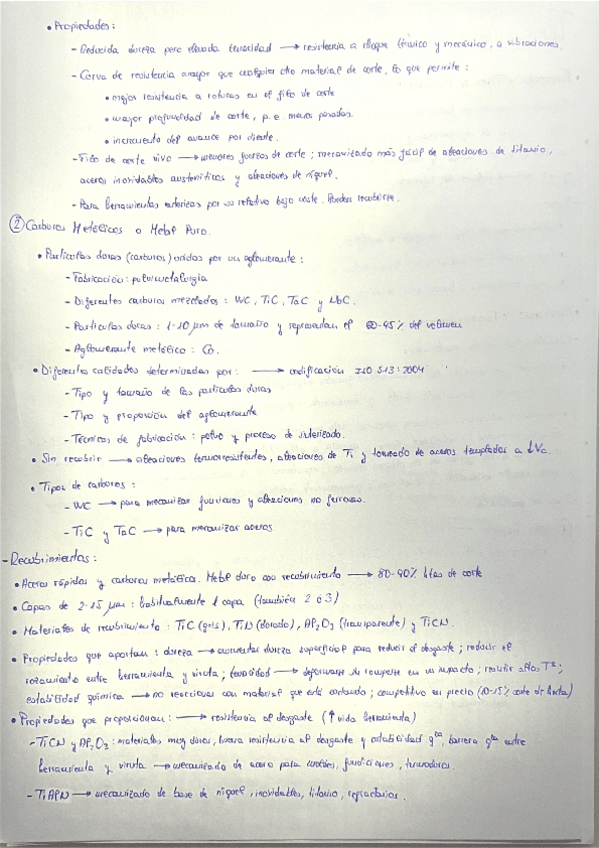 • Propiedades:
- Reducida dureza pero elevada tenacidad → resistencia a choque térmico y mecánico, a vibraciones.
- Curva de resistencia mayor que cualquier otro material de corte, lo que permite:
• mejor resistencia a roturas en el filo de corte
• mayor profundidad de corte, p.e. menos pasadas.
• incremento del avance por diente.
- Filo de corte vivo → menores fuerzas de corte; mecanizado más fácil de aleaciones de titanio,
aceros inoxidables austeníticos y aleaciones de níquel.
- Para herramientas por su relativo bajo coste. Pueden recubrirse.
② Carburos Metálicos o Metal Duro.
• Partículas duras (carburos) unidas por un aglomerante:
- Fabricación: pulvimetalurgia
- Diferentes carburos mezclados: WC, TiC, TaC y NbC.
- Partículas duras: 1-10 μm de tamaño y representan el 60-95% del volumen
- Aglomerante metálico: Co.
• Diferentes calidades determinadas por: → codificación ISO 513:2004
- Tipo y tamaño de las partículas duras
- Tipo y proporción del aglomerante
- Técnicas de fabricación: polvo y proceso de sinterizado.
• Sin recubrir → aleaciones termorresistentes, aleaciones de Ti y torneado de aceros templados a ↓Vc.
• Tipos de carburos:
- WC → para mecanizar fundiciones y aleaciones no férreas.
- TiC y TaC → para mecanizar aceros
- Recubrimientos:
• Aceros rápidos y carburos metálicos. Metal duro con recubrimiento → 80-90% htas de corte
• Capas de 2-15 μm: habitualmente 1 capa (también 2 ó 3)
• Materiales de recubrimiento: TiC (gris), TiN (dorado), Al₂O₃ (transparente) y TiCN.
• Propiedades que aportan: dureza → aumentar dureza superficial para reducir el desgaste; reducir el
rozamiento entre herramienta y viruta; tenacidad → deformarse sin romperse en un impacto; resistir altas Tª;
estabilidad química → no reaccionar con material que está cortando; competitivo en precio (10-15% coste de hta)
• Propiedades que proporcionan: → resistencia al desgaste (↑ vida herramienta)
- TiCN y Al₂O₃: materiales muy duros, buena resistencia al desgaste y estabilidad qca, barrera qca entre
herramienta y viruta → mecanizado de acero para moldes, fundiciones,
- TiAlN → mecanizado de base de níquel, inoxidables, titanio, refractarios.